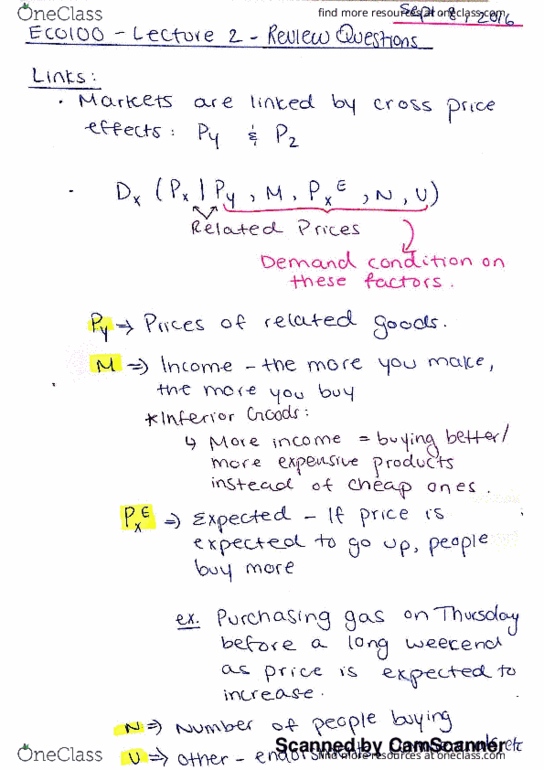 OneClass
find more resources at oneclass.com
Sept 8, 2016
ECO100 - Lecture 2 - Review Questions
Links:
• Markets are linked by cross price
effects: Py & P2
• Dx (Px | Py, M, Px^E, N, U)
Related Prices
Demand condition on
these factors.
Py → Prices of related goods.
M ⇒ Income - the more you make,
the more you buy
*Inferior Goods:
↳ More income = buying better/
more expensive products
instead of cheap ones.
Px^E ⇒ Expected - If price is
expected to go up, people
buy more
ex. Purchasing gas on Thursday
before a long weekend
as price is expected to
increase.
N ⇒ Number of people buying
Scanned by CamScanner
OneClass
U ⇒ other -